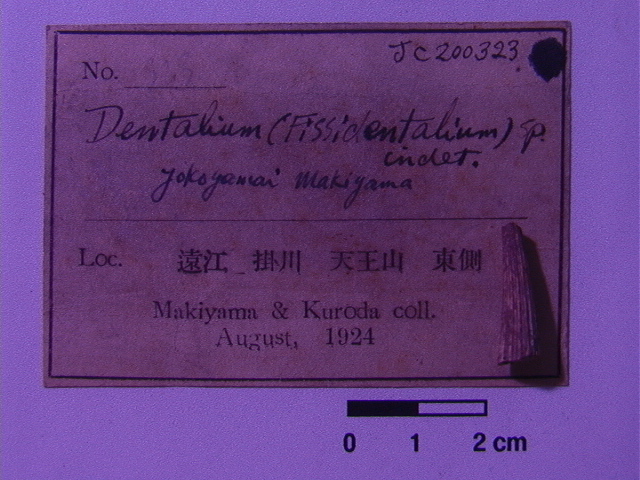 JC200323
No.
Dentalium (Fissidentalium) sp.
indet.
yokoyamai Makiyama
Loc. 遠江 掛川 天王山 東側
Makiyama & Kuroda coll.
August, 1924
0 1 2 cm